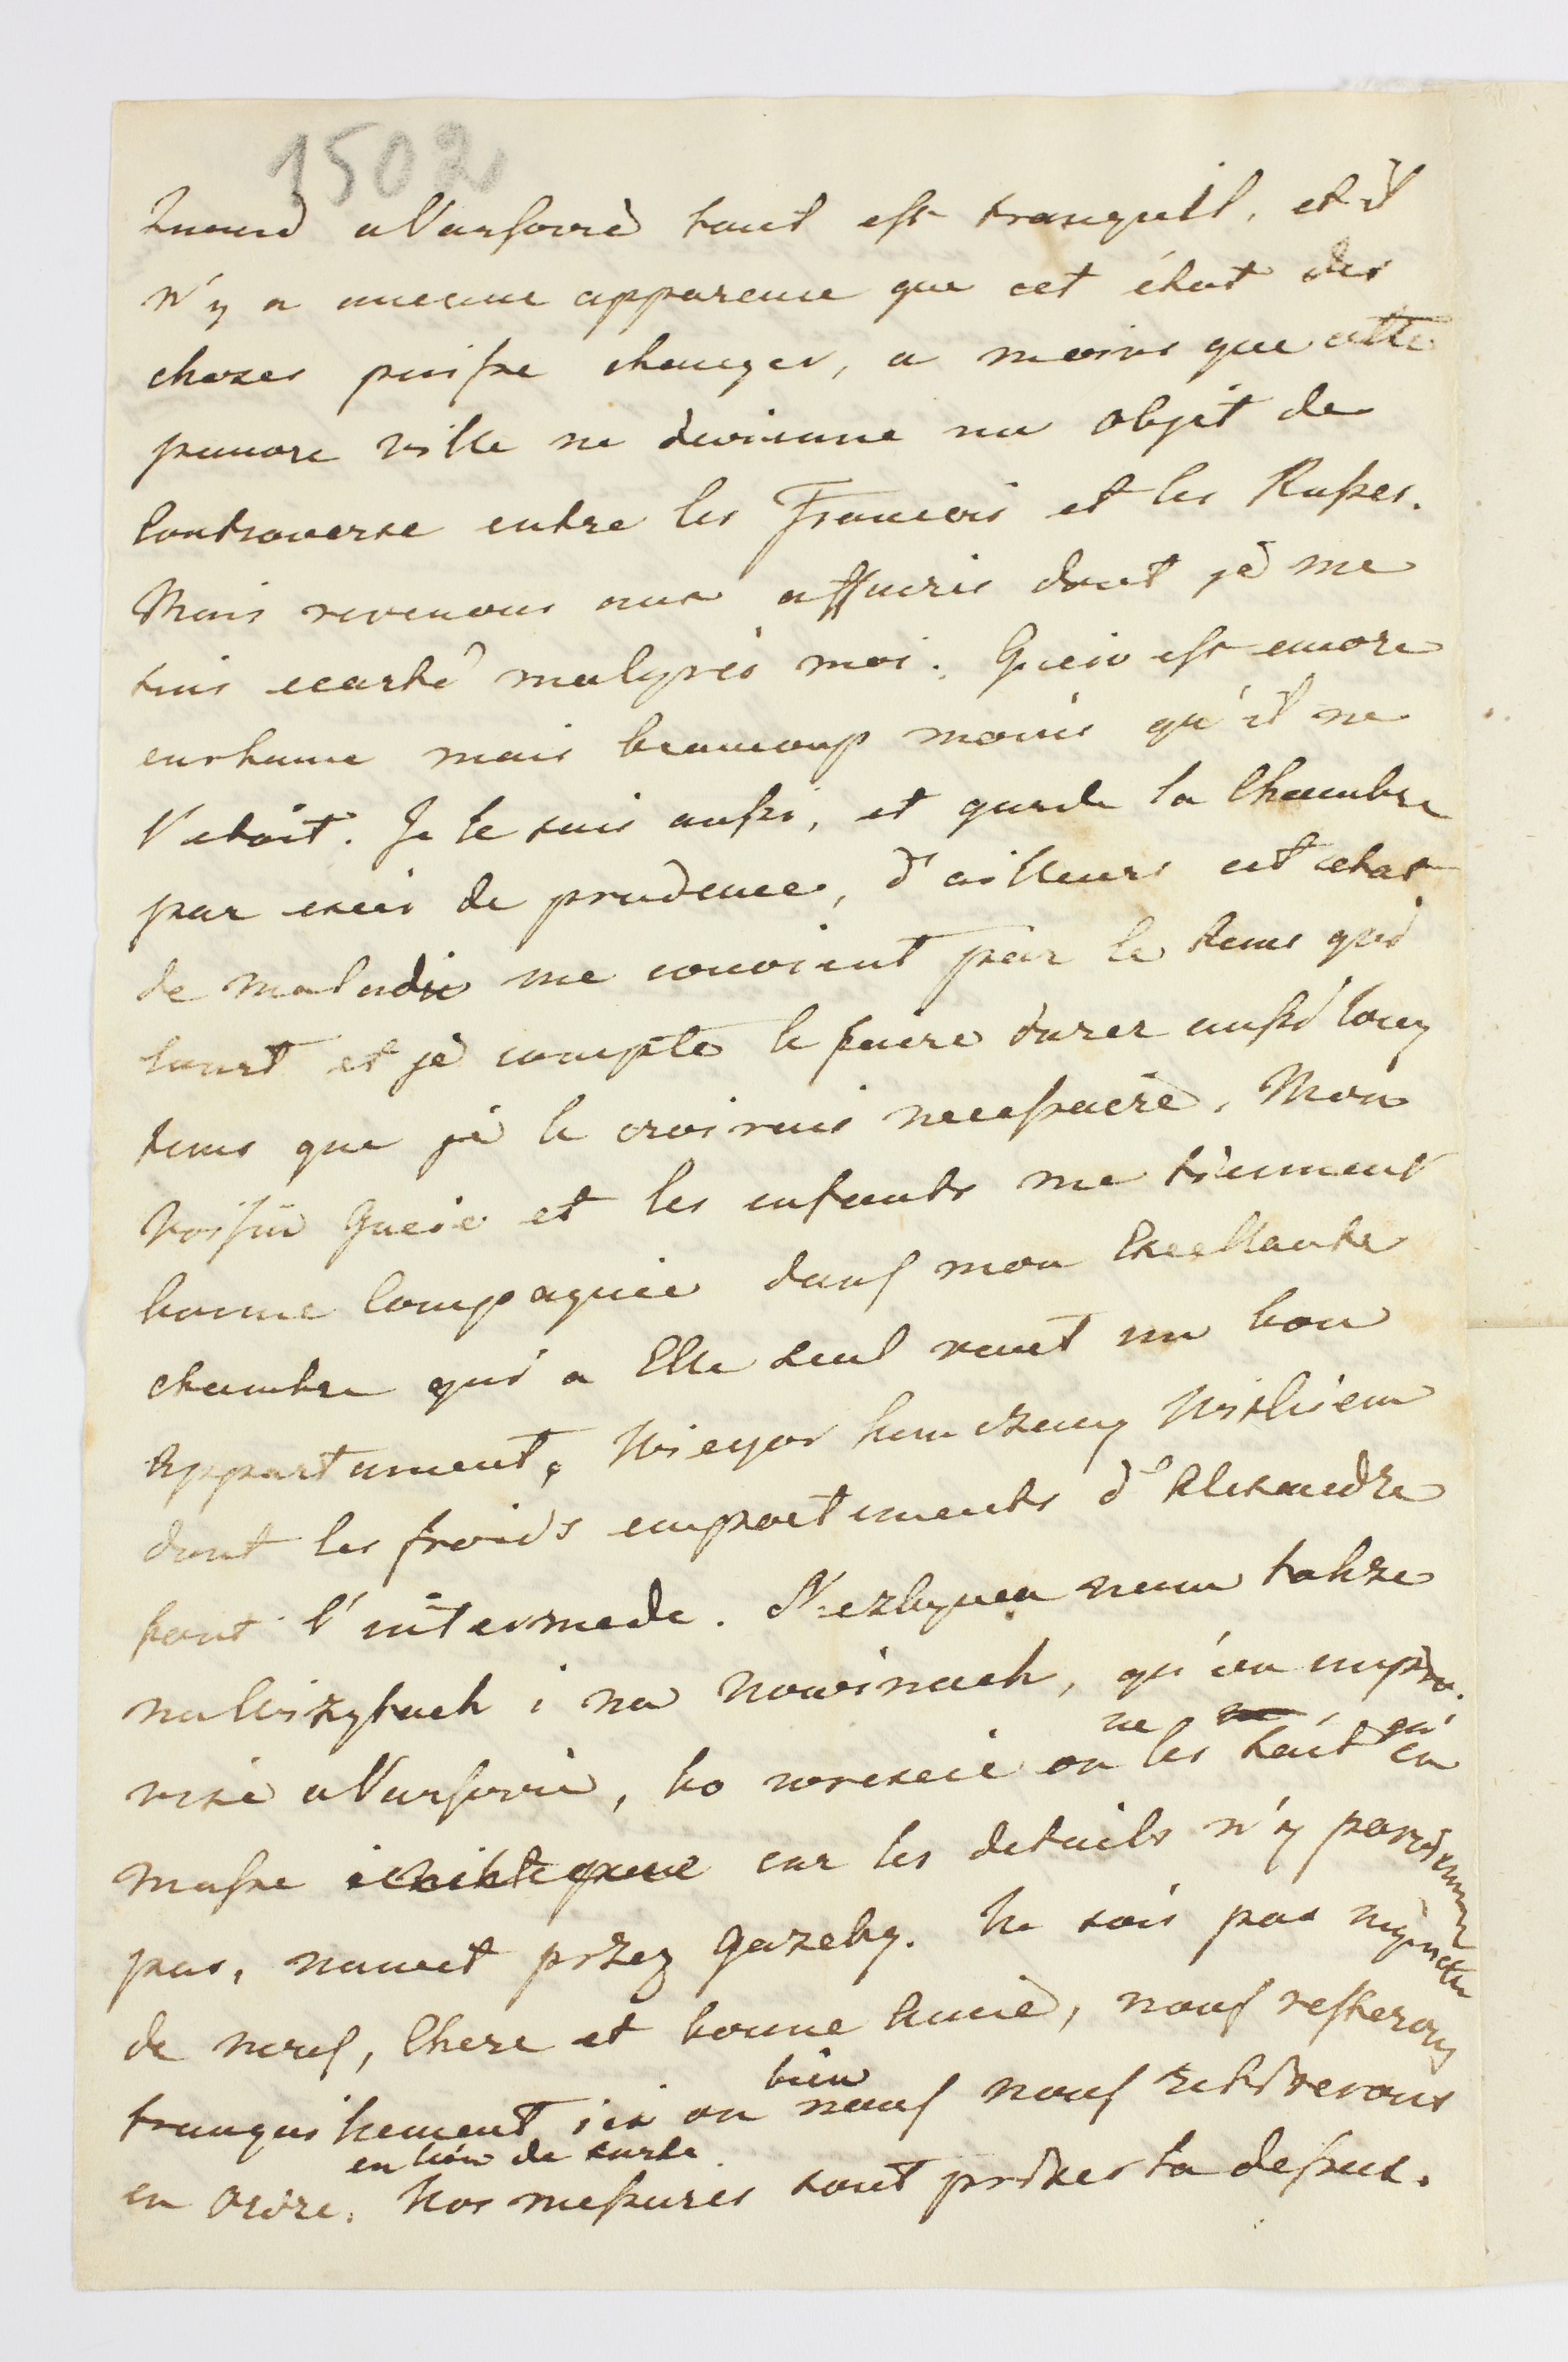 1502
Quand a Varsovie tout est tranquill, et il
n'y a aucune apparence que cet état des
choses puisse changer, a moins que cette
pauvre ville ne devienne un objet de
Controverse entre les Francois et les Russes.
Mais revenons aux affaires dont je me
suis ecarté malgrés moi. Gucio est encore
enrhume mais beaucoup moins qu'il ne
l'etoit. Je le suis aussi, et garde la Chambre
par exces de prudence, d'ailleurs cet etat
de maladie me convient par le tems qui
court et je compte le faire durer aussi long
tems que je le croirais necessaire. Mon
Voisin Gucio et les enfants me tiennent
bonne Compagnie dans mon Excellante
chambre qui a Elle seul vaut un bon
Appartement,
dont les froids emportements d'Alexandre
font l'intermede. Niezbywa nam takze
na Wizytach i na Nowinach, qu'on impro-
vise a Varsovie, bo wreszcie on ne les sait qu'en
masse car les details n'y parviennent
pas, nawet przez gazety. Ne sois pas inquiete
de nous, Chere et bonne Amie, nous resterons
tranquilement ici ou bien nous nous retirerons
en ordre. en lieu de surte. Nos mesures sont prises la dessus.